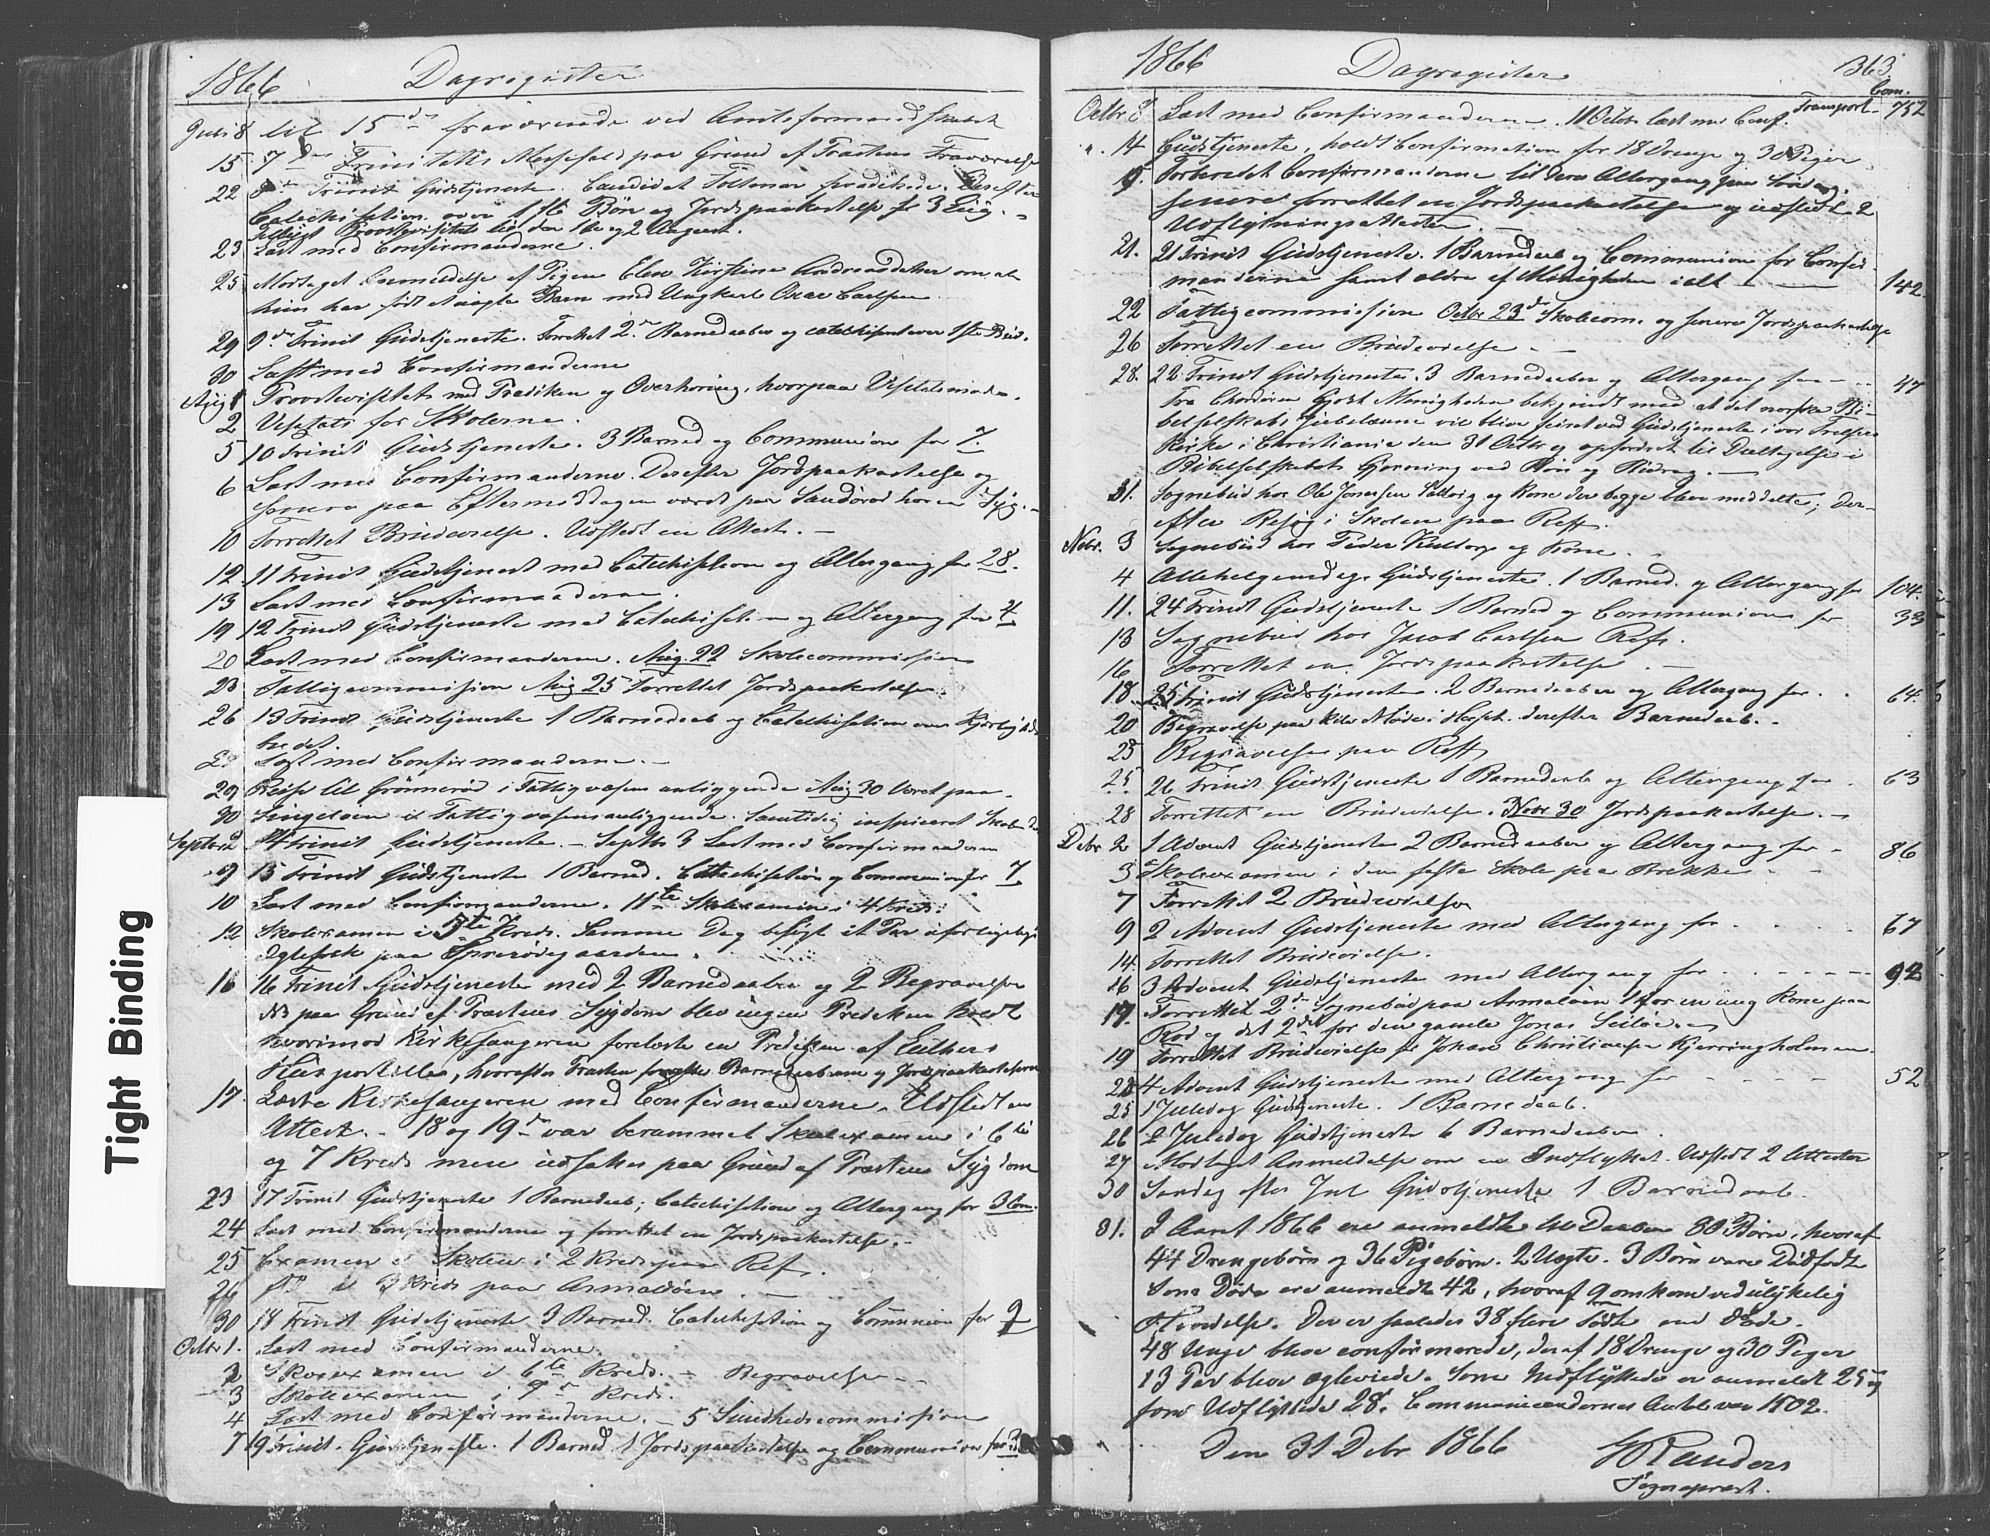 1866 Dagregister
Juli 8 til 15de fraværende ved Amtsformandskabet
15 7de Trinitatis Messefald paa Grund af Præstens Fraværelse
22 8de Trinit Gudstjeneste. Candidat prædikede. Derefter
Catechisation over 1ste Bøn og Jordspaakastelse for 3 Liig.
Provstevisitats til den 1te og 2 August.
23 Læst med Confirmanderne.
25 Modtaget Anmeldelse af Pigen Elen Kirstine Andreasdatter om at
hun har født uægte Barn med Ungkarl Oxar Carlsen
29 9de Trinit Gudstjeneste. Forrettet 2de Barnedaaber og catechiseret over 1ste Bud.
30 Læst med Confirmanderne
Aug 1 Provstevisitats med Prædiken og Overhøring, hvorpaa Visitatsmøde.
2 Visitats for Skolerne.
5 10 Trinit Gudstjeneste. 3 Barned og Communion for 7.
6 Læst med Confirmanderne. Derefter Jordspaakastelse og
senere paa Eftermiddagen været paa Sandørod hos en Syg.
10 Forrettet Brudevielse. Udstedt en Attest.
12 11 Trinit Gudstjenest med Catechisation og Altergang for 28.
13 Læst med Confirmanderne.
19 12 Trinit Gudstjeneste med Catechisat. og Altergang for 4
20 Læst med Confirmanderne. Aug. 22 Skolecommission
23 Fattigcommission Aug 25 Forrettet Jordspaakastelse.
26 13 Trinit Gudstjeneste 1 Barnedaab og Catechisation over Kjærligheds
budet.
Læst med Confirmanderne.
29 Reise til Grønnerød i Fattigvæsens anliggende Aug 30 Været paa
30 Singeløen i Fattigvæsensanliggende. Samtidig inspiceret Skolen
Septbr 2 14 Trinit Gudstjeneste. Septbr 3 Læst med Confirmanderne
9 15 Trinit Gudstjeneste 1 Barned. Catechisation og Communion for 7
10 Læst med Confirmanderne. 11te Skolexamen i 4 Kreds.
12 Skolexamen i 5te Kreds. Samme Dag besøgt et Par uforligelige
Egtefolk paa Sprerødgaarden.
16 16 Trinit Gudstjeneste med 2 Barnedaaber og 2 Begravelser
NB paa Grund af Præstens Sygdom blev ingen Prediken holdt
hvorimod Kirkesangeren forelæste en Prediken af Luthers
Huuspostille, hvorefter Præsten forrettede Barnedaabene og Jordspaakastelserne
17. Læste Kirkesangeren med Confirmanderne. Udstedt en
Attest. 18 og 19de var berammet Skolexamen i 6te
og 7 Kreds men udsattes paa Grund af Præstens Sygdom
23 17 Trinit Gudstjeneste 1 Barnedaab; Catechisation og Altergang for 3 Com.
24 Læst med Confirmanderne og forrettet en Jordspaakastelse.
25 Examen i Skolen i 2 Kreds paa Ref.
26 do i 3 Kreds paa Asmaløen.
30 18 Trinit Gudstjeneste 3 Barned. Catechisation og Communion for 9
Octbr 1. Læst med Confirmanderne.
2 Skolexamen i 6te Kreds. Begravelse
3 Skolexamen i 7de Kreds.
4 Læst med Confirmanderne. 5 Sundhedscommission
7 19 Trinit. Gudstjeneste. 1 Barned 1 Jordspaakastelse og Communion for
1866 Dagregister 363.
Com.
Octbr 8 Læst med Confirmanderne. 11 Octbr læst med Conf. Transport 752
14 Gudstjeneste, holdt Confirmation for 18 Drenge og 30 Piger
Forberedet Confirmanderne til deres Altergang paa Søndag.
senere forrettet en Jordspaakastelse og udstedt 2
Udflytningsattester.
21. 21 Trinit Gudstjeneste. 1 Barnedaab og Communion for Confir-
manderne samt ældre af Menigheden ialt 142.
22 Fattigcommission Octbr 23de Skolecom. og senere Jordspaakastelse
26 Forrettet en Brudevielse
28. 22 Trinit Gudstjeneste. 3 Barnedaaber og Altergang for 47
Fra Chordøren gjort Menigheden bekjendt med at det norske Bi-
belselskabs Jubelæum vil blive feiret ved Gudstjeneste i vor Frelsers
Kirke i Christiania den 31 Octbr og opfordret til Deeltagelse i
Bibelselskabets Gjerning ved Bøn og Bidrag.
31. Sognebud hos Ole Jonassen og Kone der begge bleve meddelte; Der-
efter Besøg i Skolen paa Reff.
Novbr. 3 Sognebud hos Peder Kultorp og Kone.
4 Allehelgensdags Gudstjeneste. 1 Barned. og Altergang for 104.
11. 24 Trinit Gudstjeneste 1 Barned og Communion for 33
13 Sognebud hos Jacob Carlsen Refs.
16 Forrettet en Jordspaakastelse.
18. 25 Trinit Gudstjeneste. 2 Barnedaaber og Altergang for 64.
20 Begravelse paa derefter Barnedaab.
23 Begravelse paa Reff
25 26 Trinit Gudstjeneste 1 Barnedaab og Altergang for 63
28 Forrettet en Brudevielse. Novbr 30 Jordspaakastelse.
Debr 2 1 Advent Gudstjeneste 2 Barnedaaber og Altergang for 86
3 Skolexamen i den faste Skole paa Brekke
7 Forrettet 2 Brudevielser
9 2 Advent Gudstjeneste med Altergang for 67
14 Forrettet Brudevielse.
16 3 Advent Gudstjeneste med Altergang for 92
17. Forrettet 2de Sognebud paa Asmaløen 1 for en ung Kone paa
Rød og det 2det for den gamle Jonas Seiløe.
19 Forrettet Brudevielse for Johan Christiansen Kjerringholmen
4 Advent Gudstjeneste med Altergang for 52
25 1 Juledag Gudstjeneste. 1 Barnedaab.
26 2 Juledag Gudstjeneste 6 Barnedaaber
27 Modtaget Anmeldelse om en Indflyttet. Udstedt 2 Attester
30 Søndag efter Jul Gudstjeneste 1 Barnedaab.
31. I Aaret 1866 ere anmeldte til Daaben 80 Børn, hvoraf
44 Drengebørn og 36 Pigebørn. 2 Uægte. 3 Børn vare Dødfødte
Som Døde ere anmeldte 42, hvoraf 9 omkomne ved ulykkelig
Hændelse. Der er saaledes 38 flere Født end Døde.
48 Unge bleve confirmerede, deraf 18 Drenge og 30 Piger
13 Par bleve ægteviede. Som Indflyttede er anmeldt 25 og
som Udflyttede 28. Communicandernes Antal var 1502.
Den 31 Debr 1866
Randers
Sognepræst.
Tight Binding